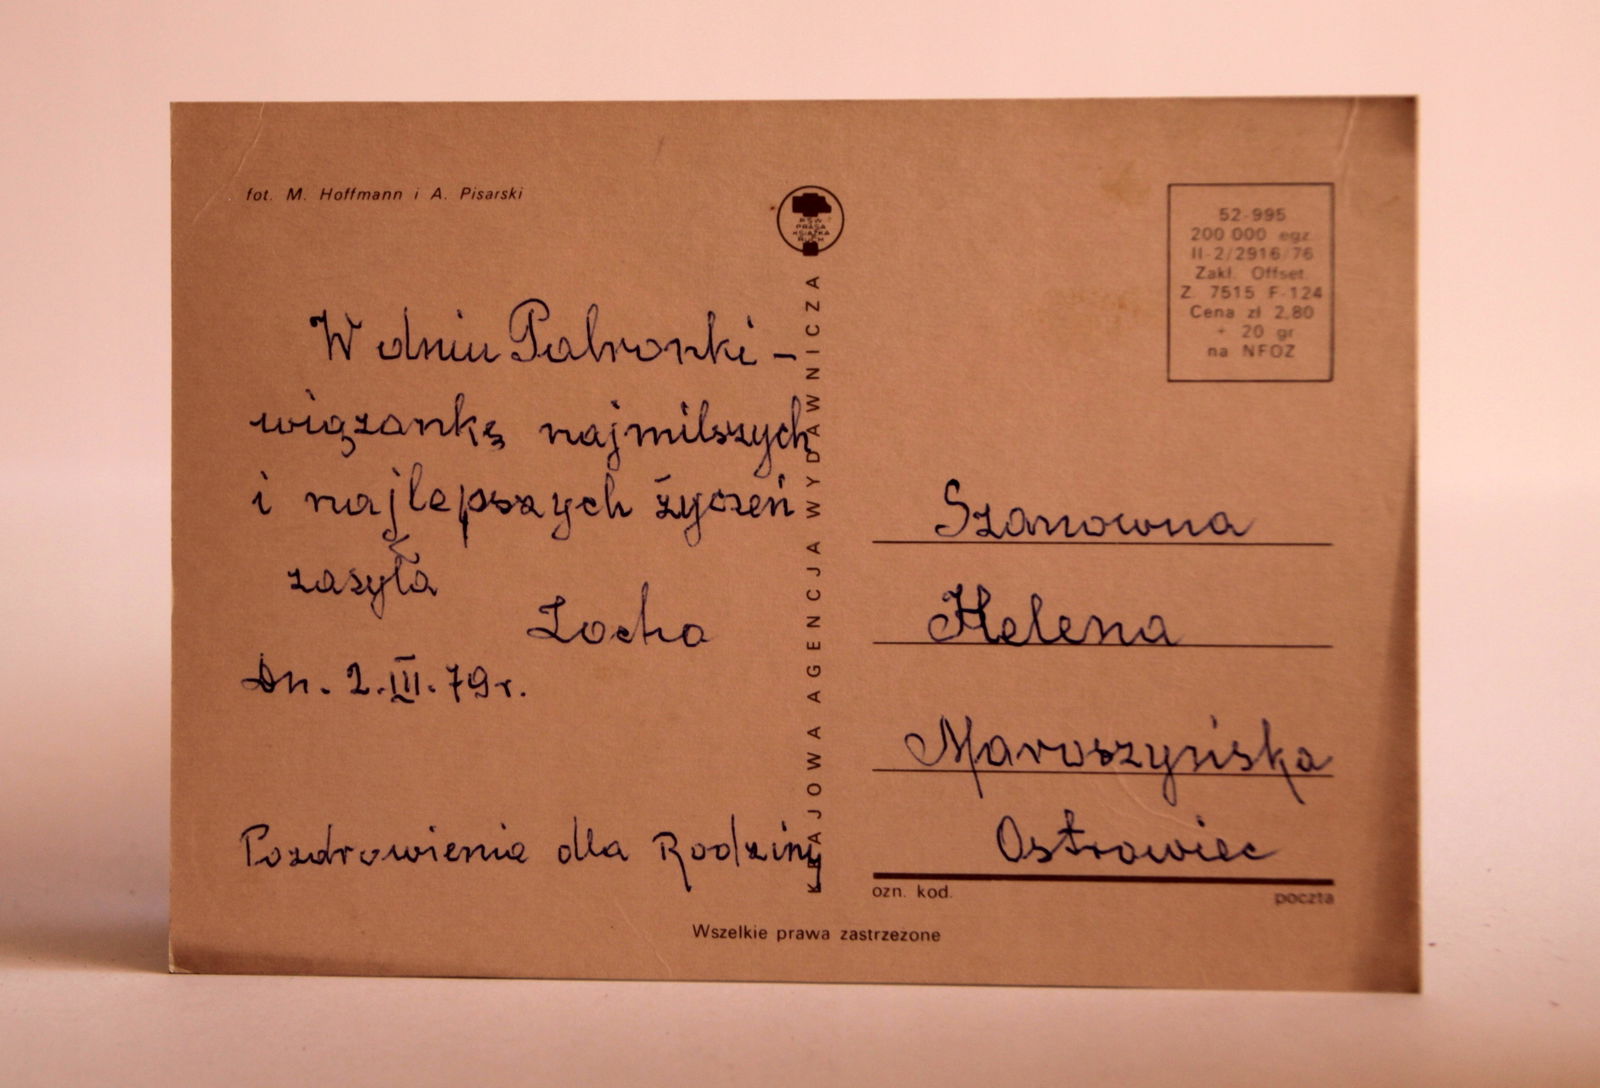 fot. M. Hoffmann i A. Pisarski
W dniu Patronki –
wiązankę najmilszych
i najlepszych życzeń
zasyła
Zocha
Dn. 2.III.79r.
Pozdrowienia dla Rodziny
RSW
PRASA
KSIĄŻKA
RUCH
KRAJOWA AGENCJA WYDAWNICZA
52-995
200 000 egz.
II-2/2916/76
Zakł. Offset.
Z. 7515 F-124
Cena zł 2,80
+ 20 gr
na NFOZ
Szanowna
Helena
Maroszyńska
Ostrowiec
ozn. kod.
poczta
Wszelkie prawa zastrzeżone